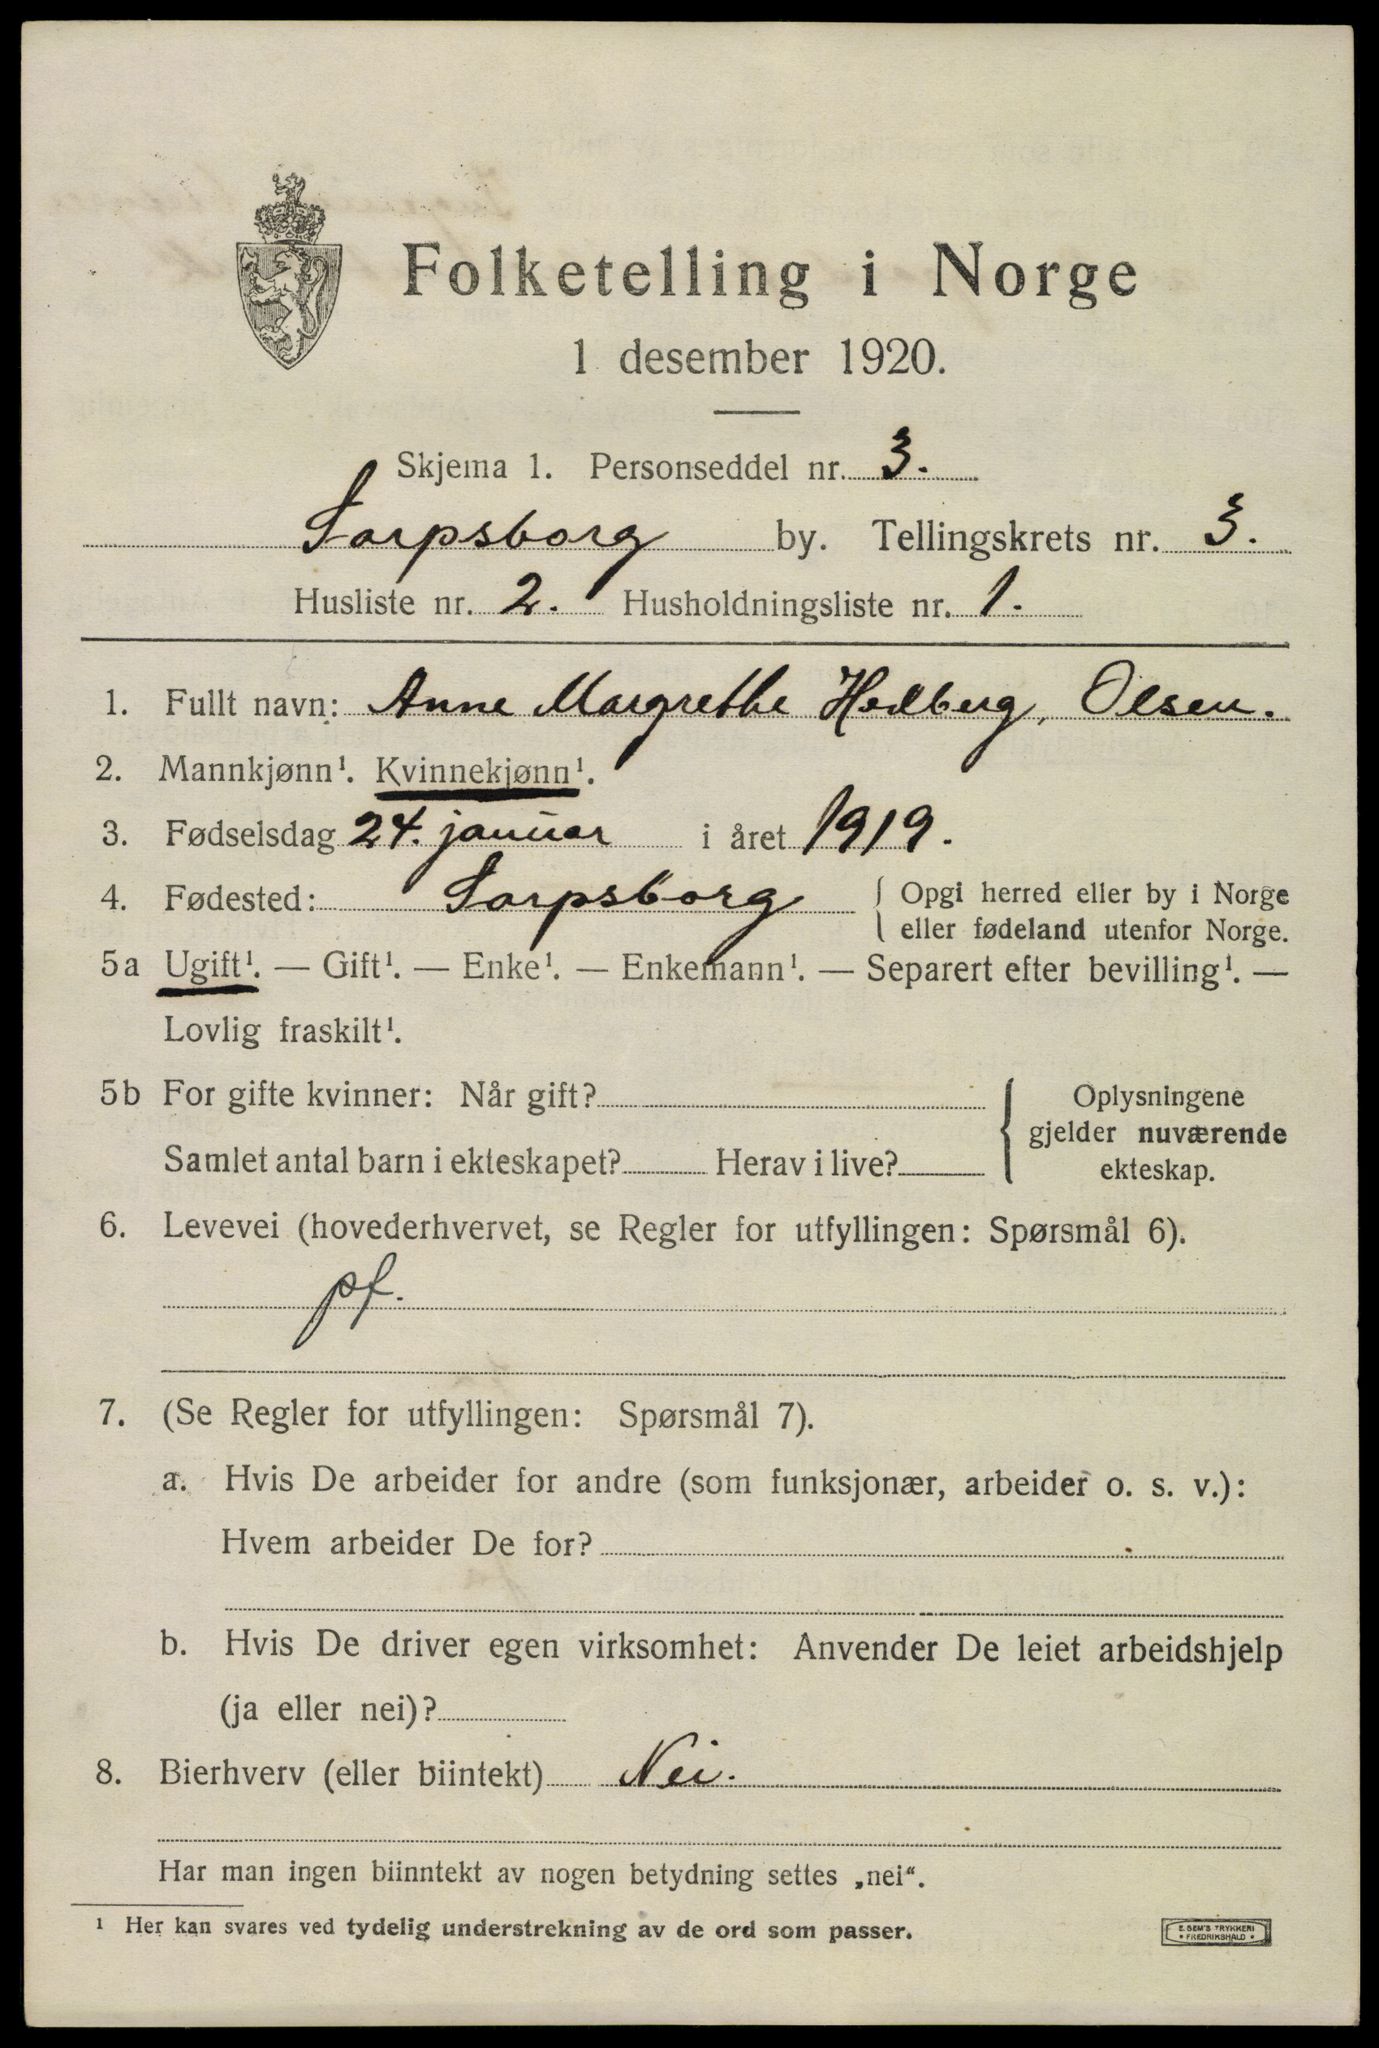 Folketelling i Norge
1 desember 1920.
Skjema 1. Personseddel nr. 3.
Sarpsborg by. Tellingskrets nr. 3.
Husliste nr. 2. Husholdningsliste nr. 1.
1. Fullt navn: Anne Margrethe Hedberg, Olsen.
2. Mannkjønn¹. Kvinnekjønn¹.
3. Fødselsdag 24. januar i året 1919.
4. Fødested: Sarpsborg { Opgi herred eller by i Norge
eller fødeland utenfor Norge.
5a Ugift¹. — Gift¹. — Enke¹. — Enkemann¹. — Separert efter bevilling¹. —
Lovlig fraskilt¹.
5b For gifte kvinner: Når gift? { Oplysningene
gjelder nuværende
Samlet antal barn i ekteskapet? Herav i live? ekteskap.
6. Levevei (hovederhvervet, se Regler for utfyllingen: Spørsmål 6).
pf.
7. (Se Regler for utfyllingen: Spørsmål 7).
a. Hvis De arbeider for andre (som funksjonær, arbeider o. s. v.):
Hvem arbeider De for?
b. Hvis De driver egen virksomhet: Anvender De leiet arbeidshjelp
(ja eller nei)?
8. Bierhverv (eller biintekt) Nei.
Har man ingen biinntekt av nogen betydning settes „nei“.
¹ Her kan svares ved tydelig understrekning av de ord som passer.
E. SEM'S TRYKKERI
* FREDRIKSHALD *